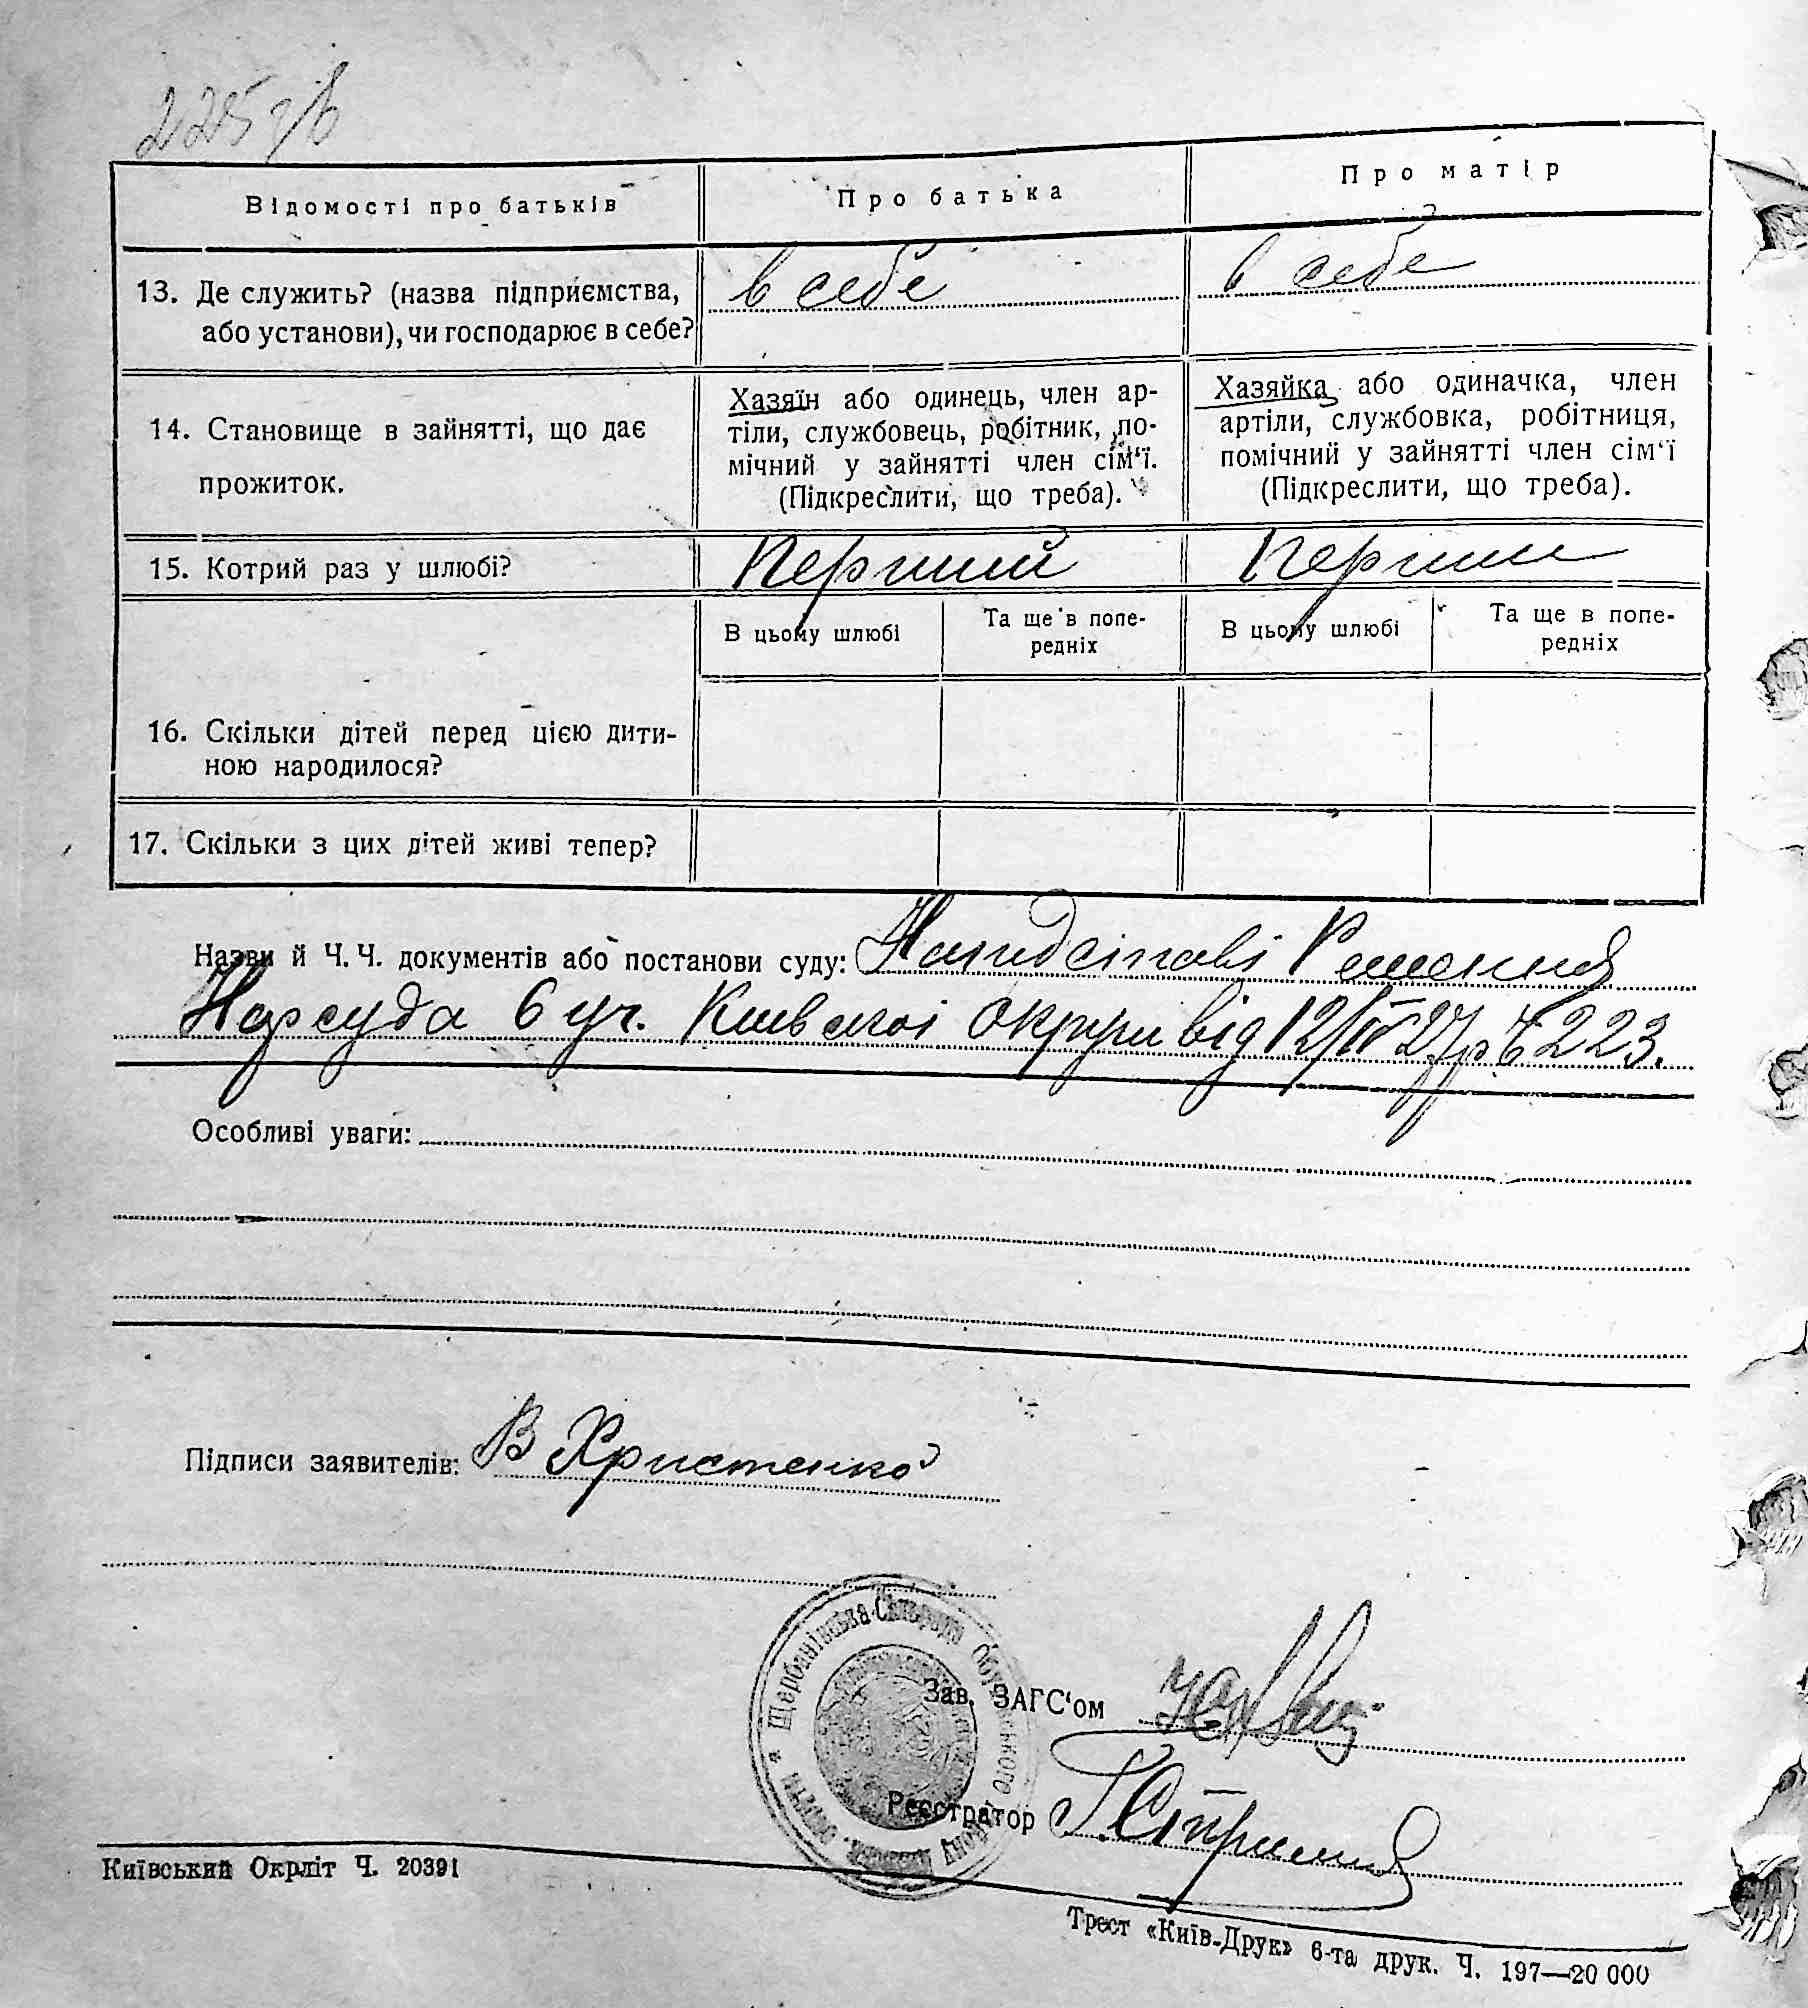 225 зв
Відомості про батьків
Про батька
Про матір
13. Де служить? (назва підприємства,
або установи), чи господарює в себе?
в себе
в себе
14. Становище в зайнятті, що дає
прожиток.
Хазяїн або одинець, член ар-
тіли, службовець, робітник, по-
мічний у зайнятті член сім‘ї.
(Підкреслити, що треба).
Хазяйка або одиначка, член
артіли, службовка, робітниця,
помічний у зайнятті член сім‘ї
(Підкреслити, що треба).
15. Котрий раз у шлюбі?
Перший
Перший
В цьому шлюбі
Та ще в попе-
редніх
В цьому шлюбі
Та ще в попе-
редніх
16. Скільки дітей перед цією дити-
ною народилося?
17. Скільки з цих дітей живі тепер?
Назви й Ч. Ч. документів або постанови суду: Напидставі Решения
Нарсуда 6 уч. Київської округи від 12/IV 27 р Ч 223.
Особливі уваги:
Підписи заявителів: В Христенко
Щербанівська Сільрада Обухівського району
Зав. ЗАГС‘ом
Реєстратор
Київський Окрліт Ч. 20391
Трест «Київ-Друк» 6-та друк. Ч. 197—20 000